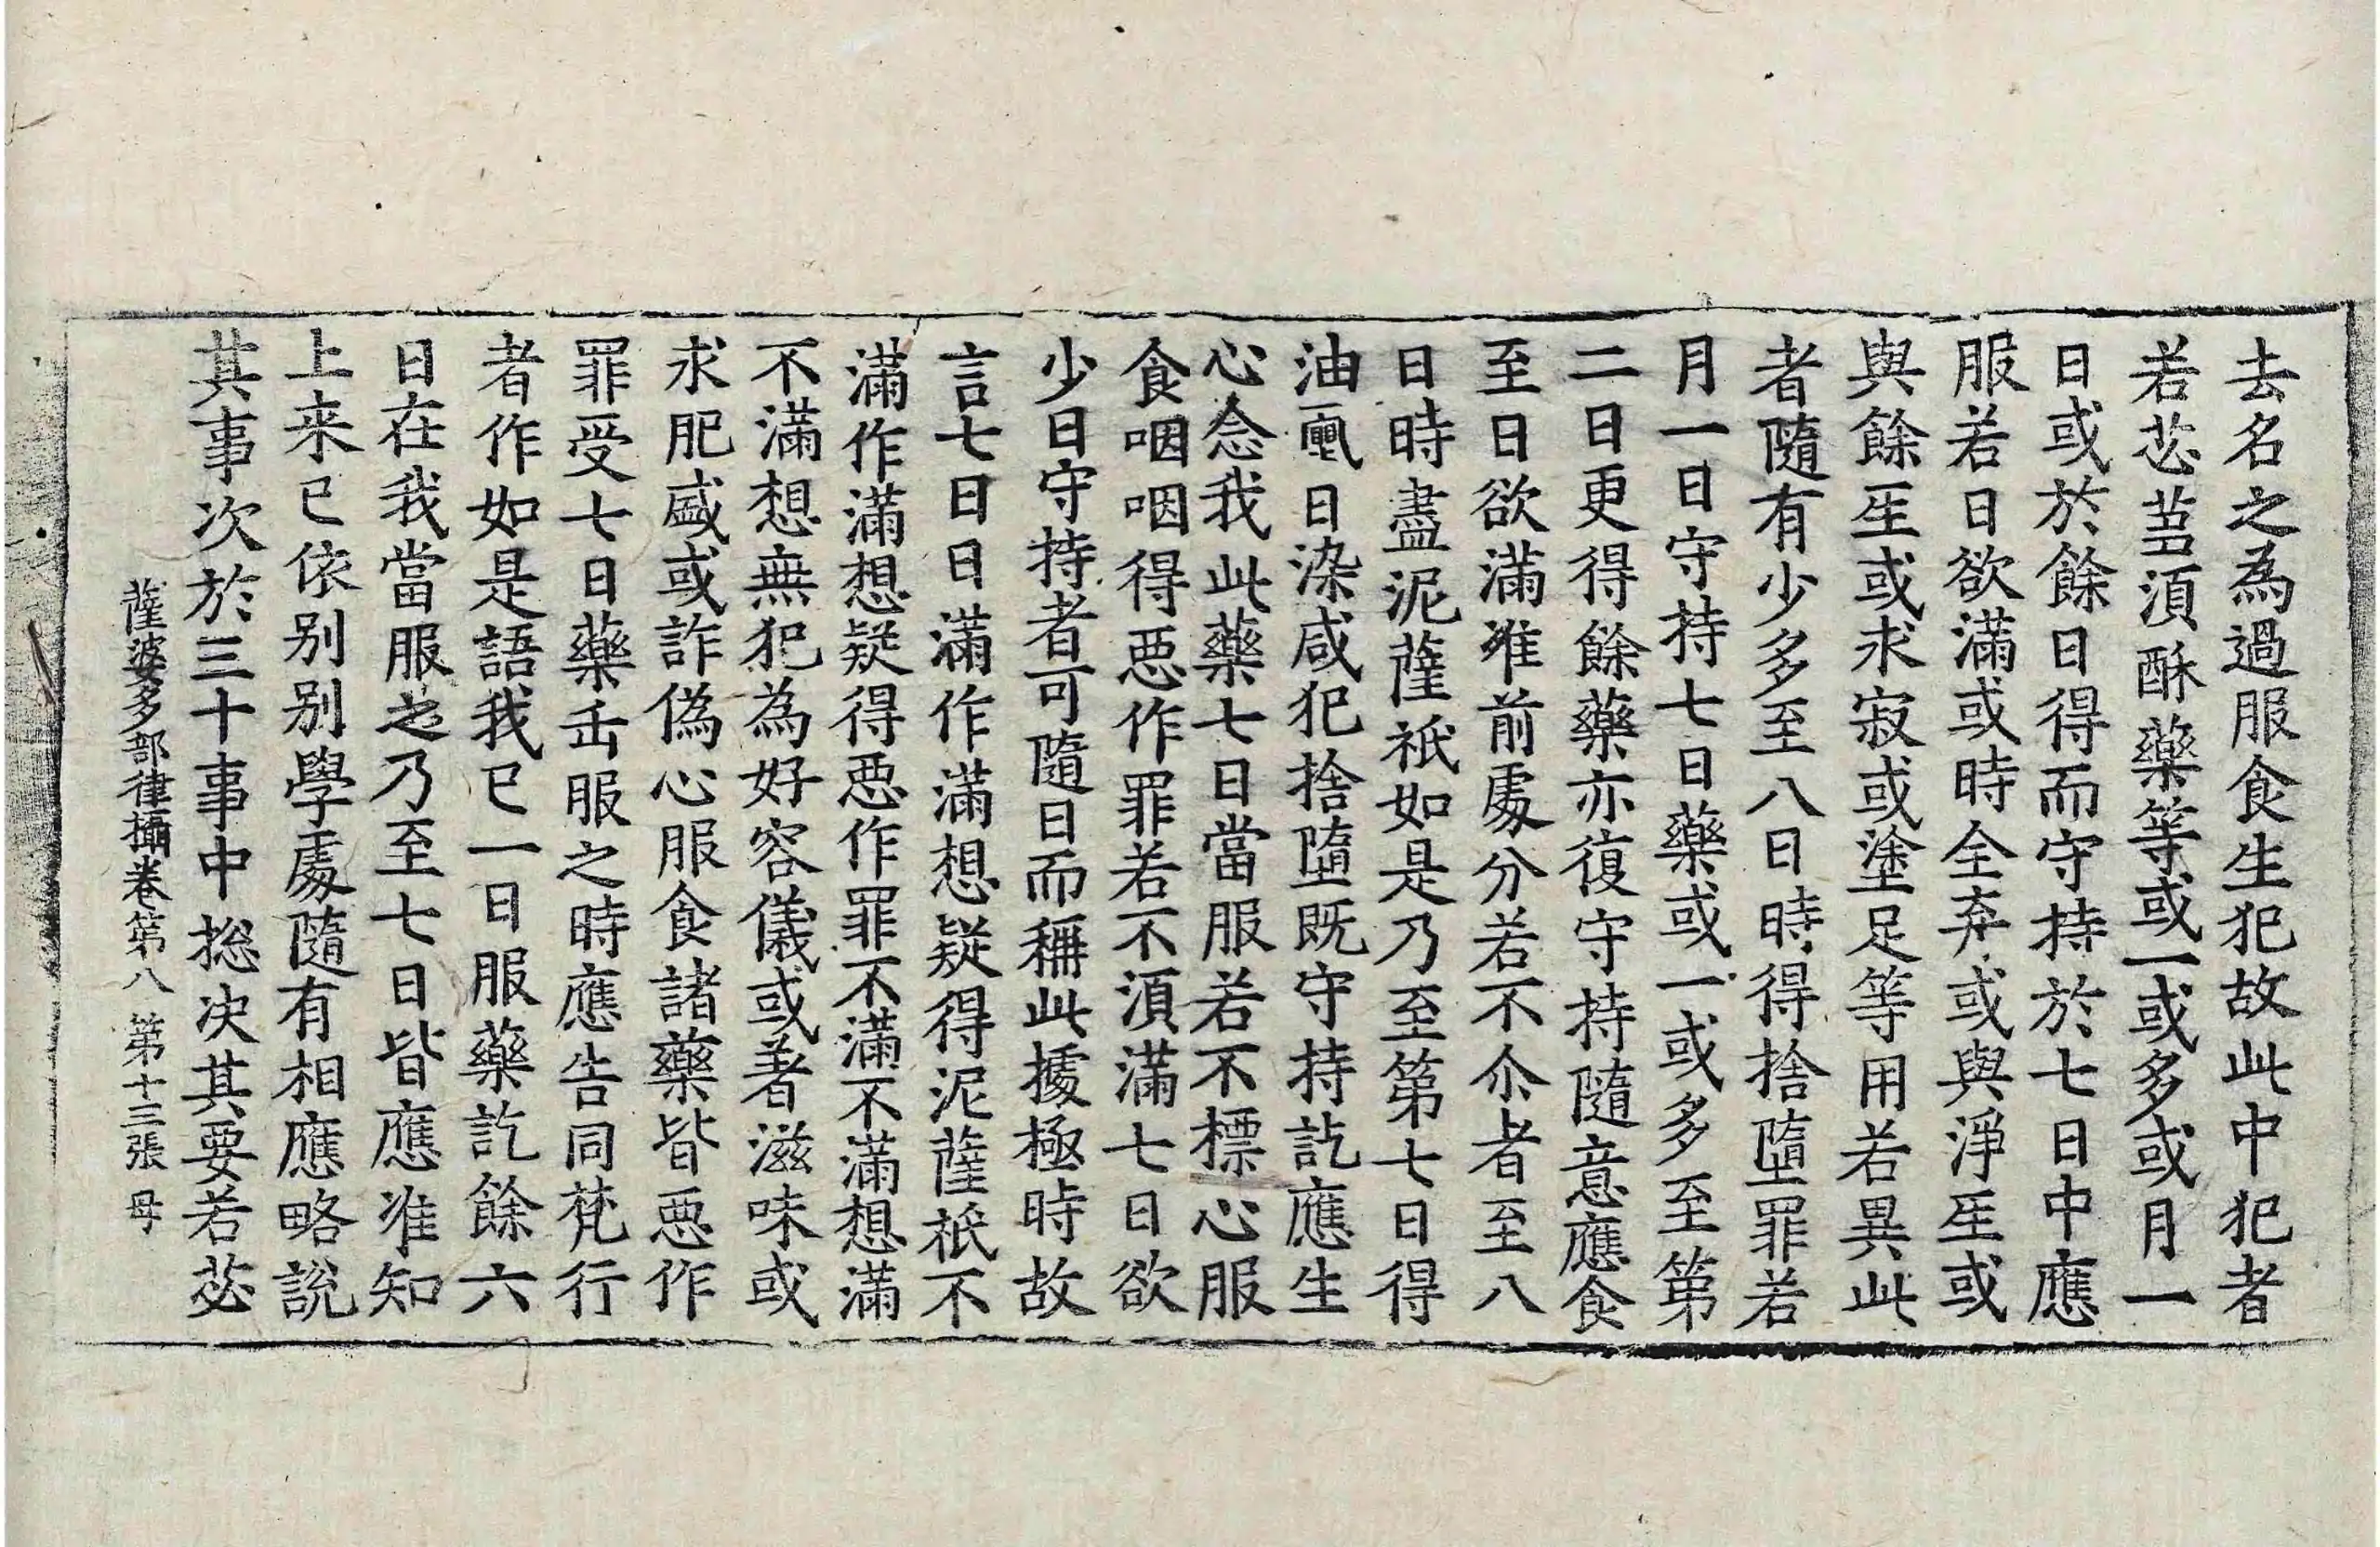 去名之為過服食生犯故此中犯者
若苾蒭湏酥藥等或一或多或月一
日或於餘日得而守持於七日中應
服若日欲滿或時全弃或與淨𤯔或
與餘𤯔或求寂或塗足等用若異此
者隨有少多至八日時得捨墮罪若
月一日守持七日藥或一或多至第
二日更得餘藥亦復守持隨意應食
至日欲滿准前處分若不尒者至八
日時盡泥薩祇如是乃至第七日得
油甖日染咸犯捨墮既守持訖應生
心念我此藥七日當服若不標心服
食咽咽得惡作罪若不湏滿七日欲
少日守持者可隨日而稱此據極時故
言七日日滿作滿想疑得泥薩祇不
滿作滿想疑得惡作罪不滿不滿想滿
不滿想無犯為好容儀或著滋味或
求肥盛或詐偽心服食諸藥皆惡作
罪受七日藥缶服之時應告同梵行
者作如是語我已一日服藥訖餘六
日在我當服之乃至七日皆應准知
上来已依别别學處隨有相應略說
其事次於三十事中捴决其要若苾
薩婆多部律攝卷第八 第十三張 母